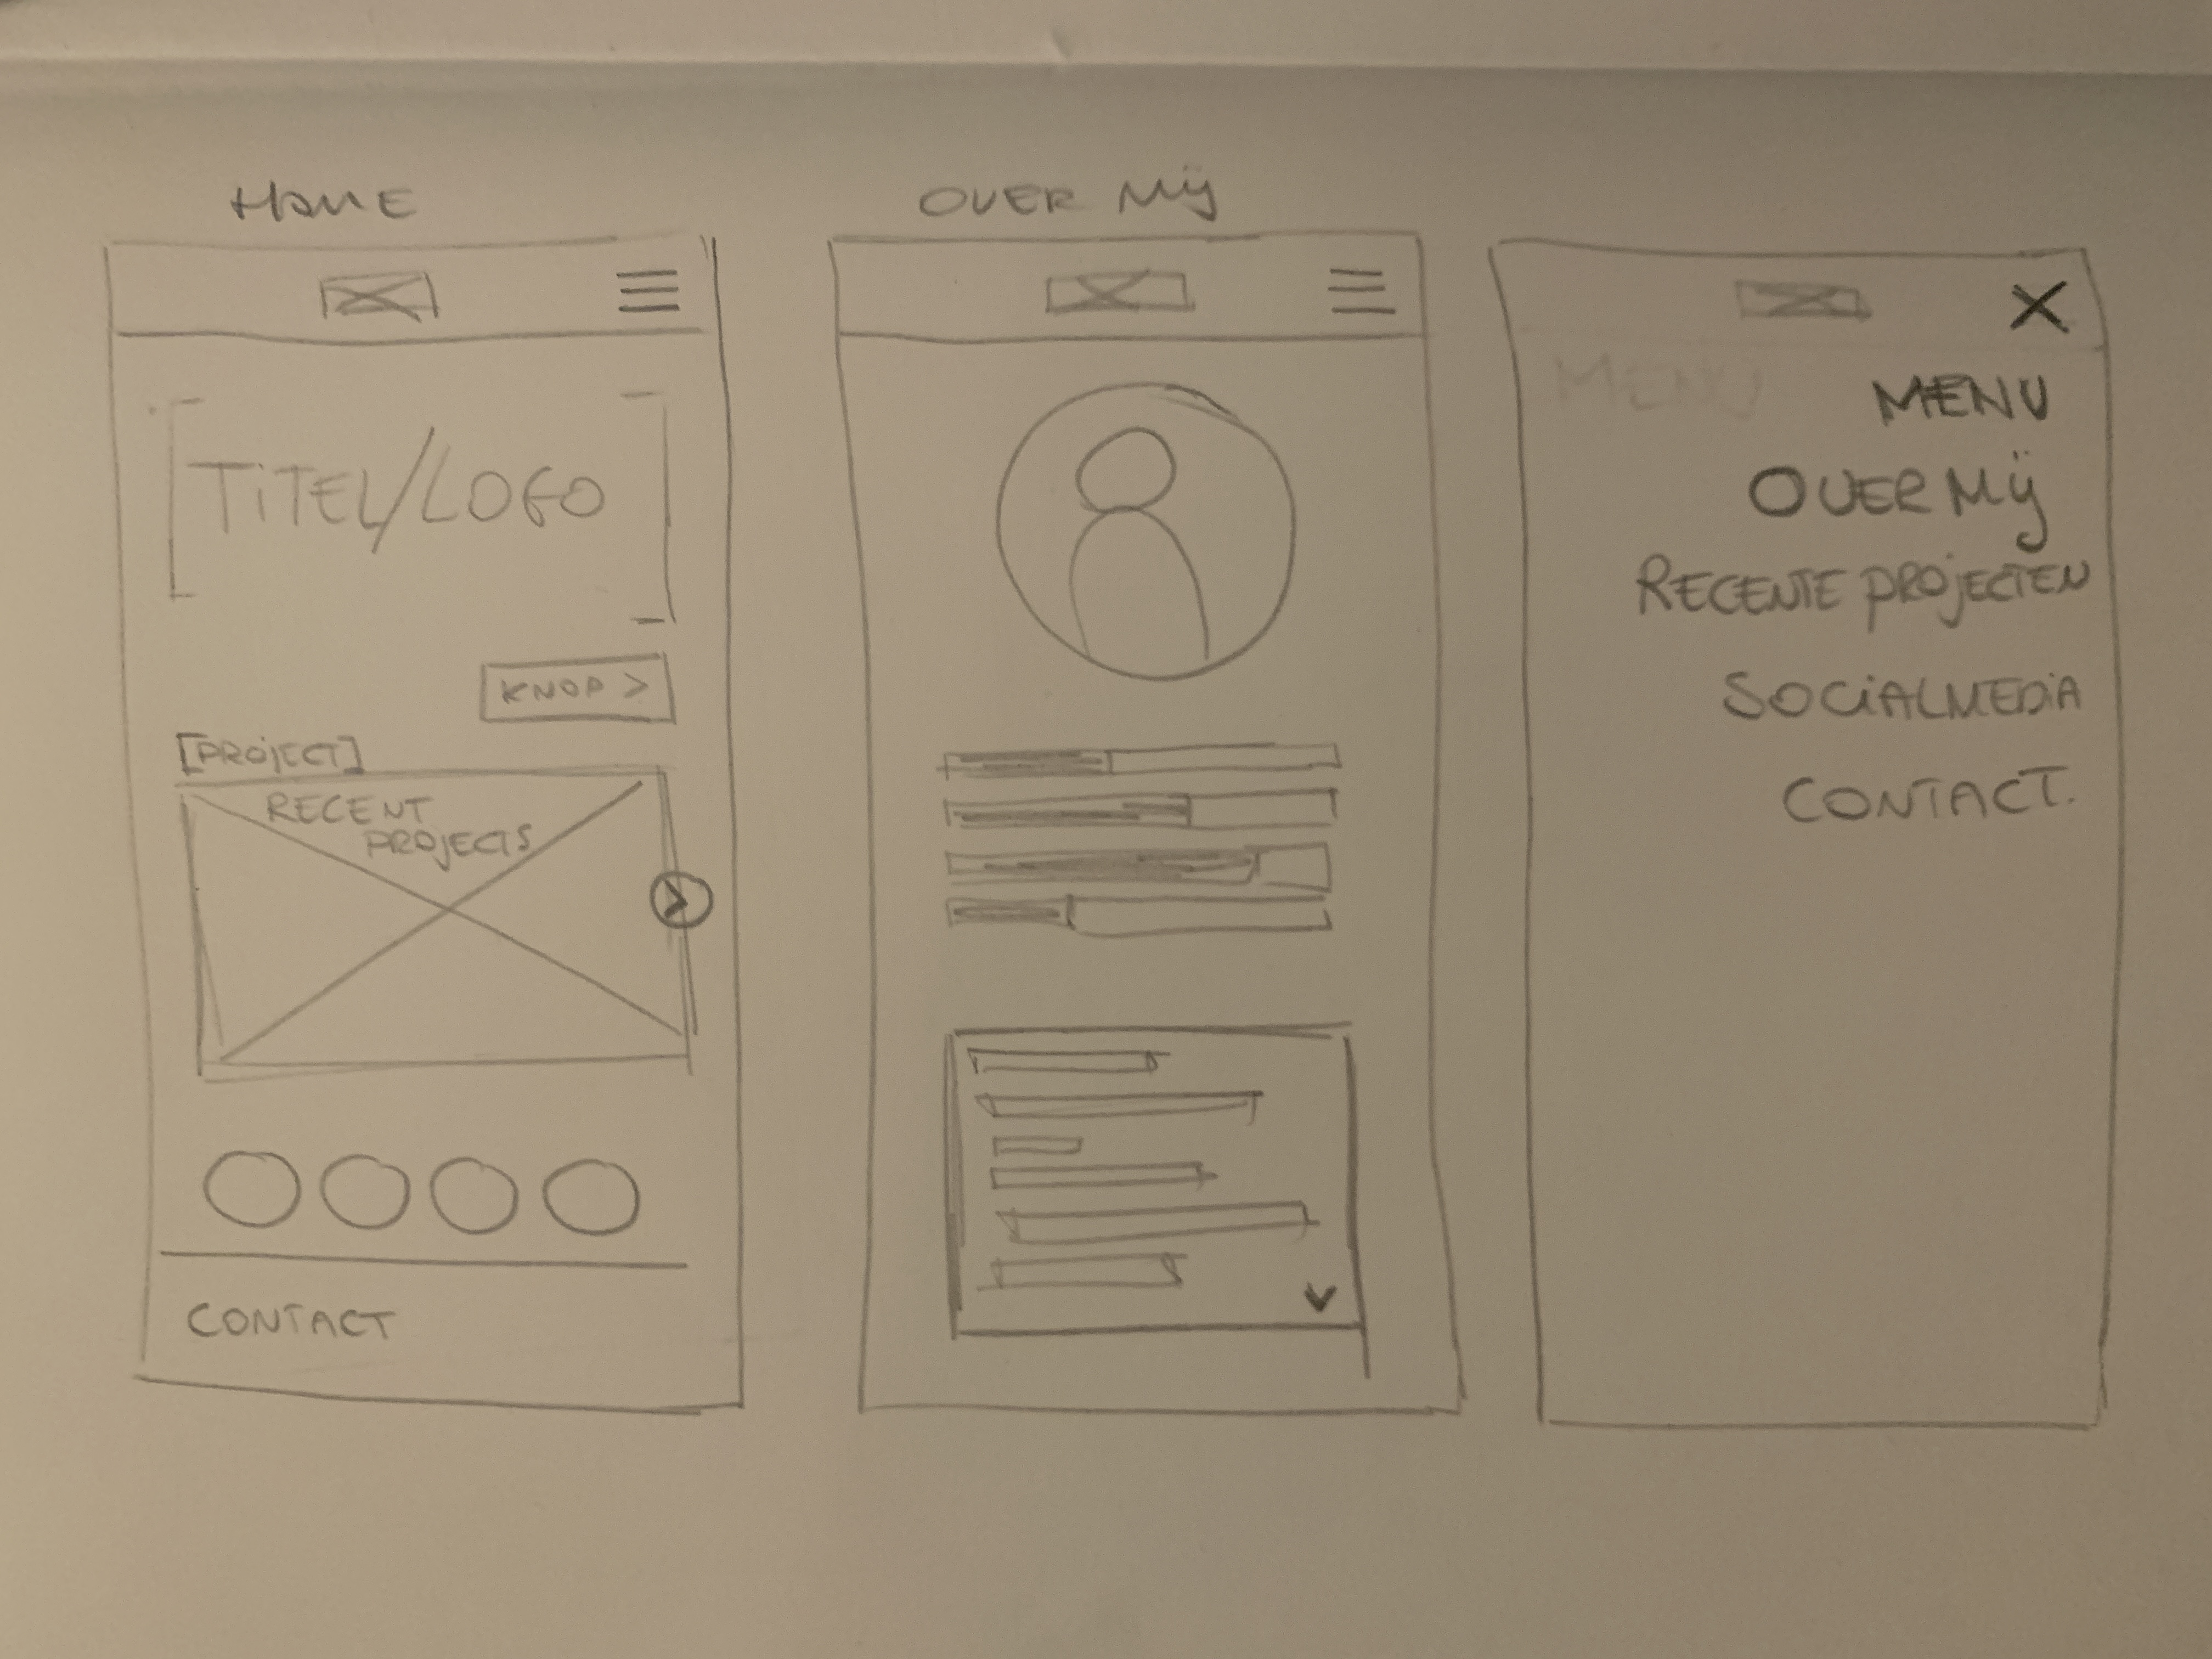 HOME
TiTEL/LOGO
KNOP >
[PROjECT]
RECENT
PROjECTS
CONTACT
OVER Mÿ
MENU
MENU
OVER Mÿ
RECENTE PROjECTEN
SOCiALMEDiA
CONTACT.